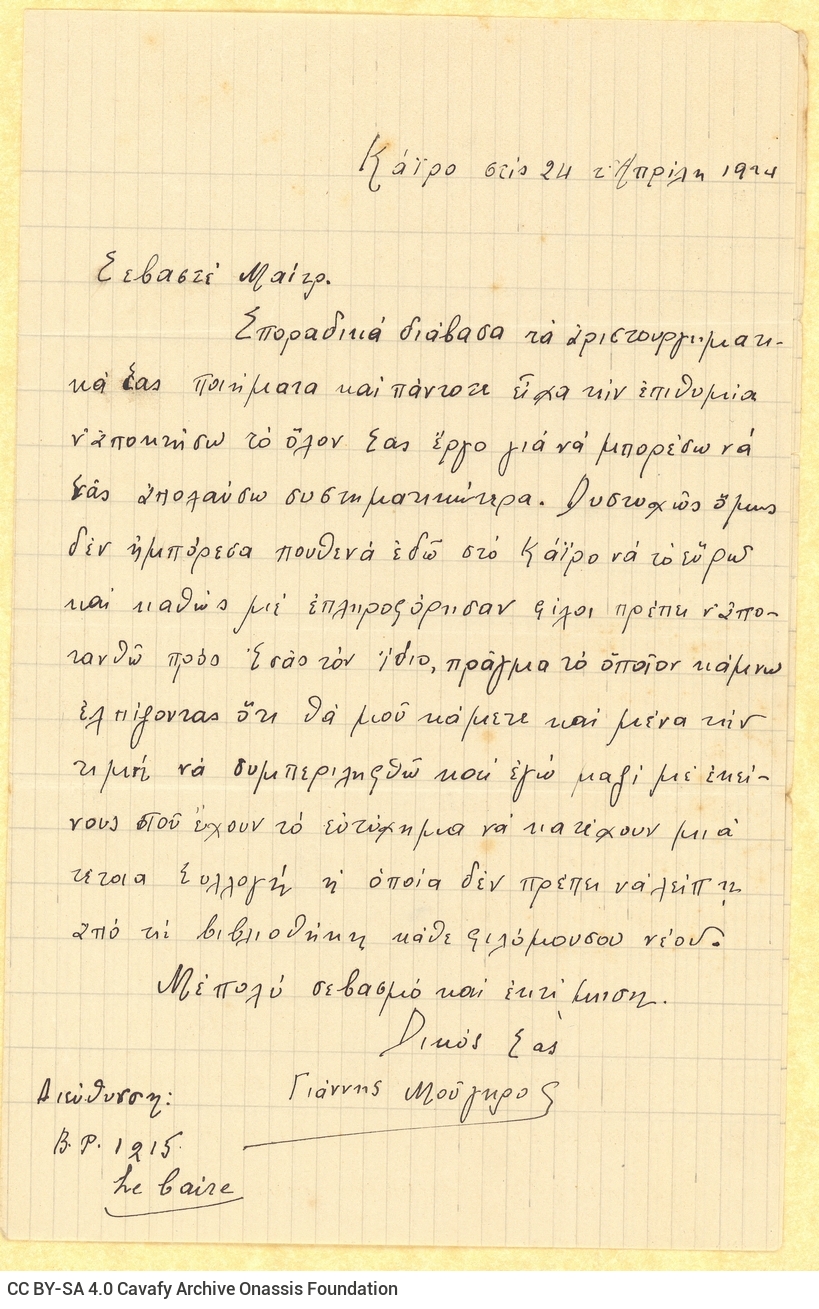 Κάϊρο στίς 24 τ'Απρίλη 1924
Σεβαστέ Μαίτρ.
Σποραδικά διάβασα τά ἀριστουργηματι-
κά Σας Ποιήματα καί πάντοτε εἶχα τήν ἐπιθυμία
ν'ἀποκτήσω τό ὅλον Σας ἔργο γιά νά μπορέσω νά
Σᾶς ἀπολαύσω συστηματικώτερα. Δυστυχῶς ὅμως
δέν ἠμπόρεσα πουθενά ἐδῶ στό Κάϊρο νά τό εὕρω
καί καθώς μέ ἐπληροφόρησαν φίλοι πρέπει ν'ἀπο-
τανθῶ πρός Ἐσᾶς τόν ἴδιο, πρᾶγμα τό ὁποῖον κάμνω
ἐλπίζοντας ὅτι θά μοῦ κάμετε καί μένα τήν
τιμή νά συμπεριληφθῶ καί ἐγώ μαζί μέ ἐκεί-
νους ποῦ ἔχουν τό εὐτύχημα νά κατέχουν μιά
τέτοια Συλλογή ἡ ὁποία δέν πρέπει νά λείπῃ
ἀπό τή βιβλιοθήκη κάθε φιλόμουσου νέου.
Μέ πολύ σεβασμό καί ἐκτίμηση.
Δικός Σας
Γιάννης Μούγηρος
Διεύθυνση:
B.P. 1215
Le Caire
CC BY-SA 4.0 Cavafy Archive Onassis Foundation